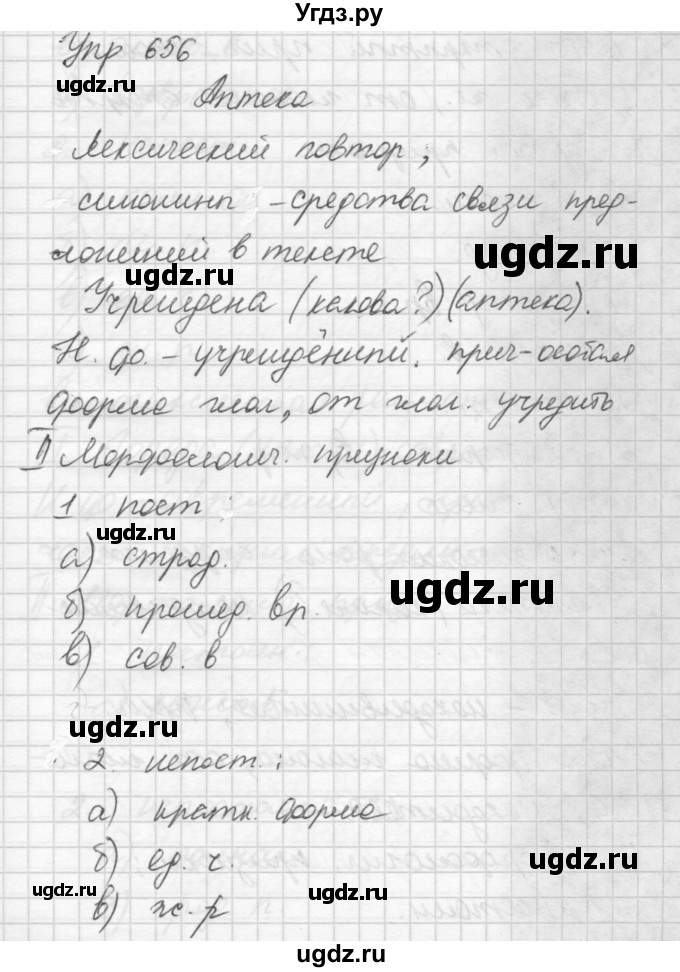 Угдз.ру
Упр 656
ugdz.ru
Аптека
ugdz.ru
Лексический повтор;
синонимы – средства связи пред-
ugdz.ru
ложений в тексте
ugdz.ru
Учреждена (какова?) (аптека).
Н. ф. – учреждённый, прич-особая
форма глаг, от глаг. учредить
II Морфологич. признаки
1 пост:
ugdz.ru
а) страд.
ugdz.ru
б) прошед. вр.
в) сов. в
ugdz.ru
2. непост.:
а) кратк. форма
б) ед. ч.
ugdz.ru
ugdz.ru
ugdz.ru
в) ж. р
ugdz.ru
Угдз.ру